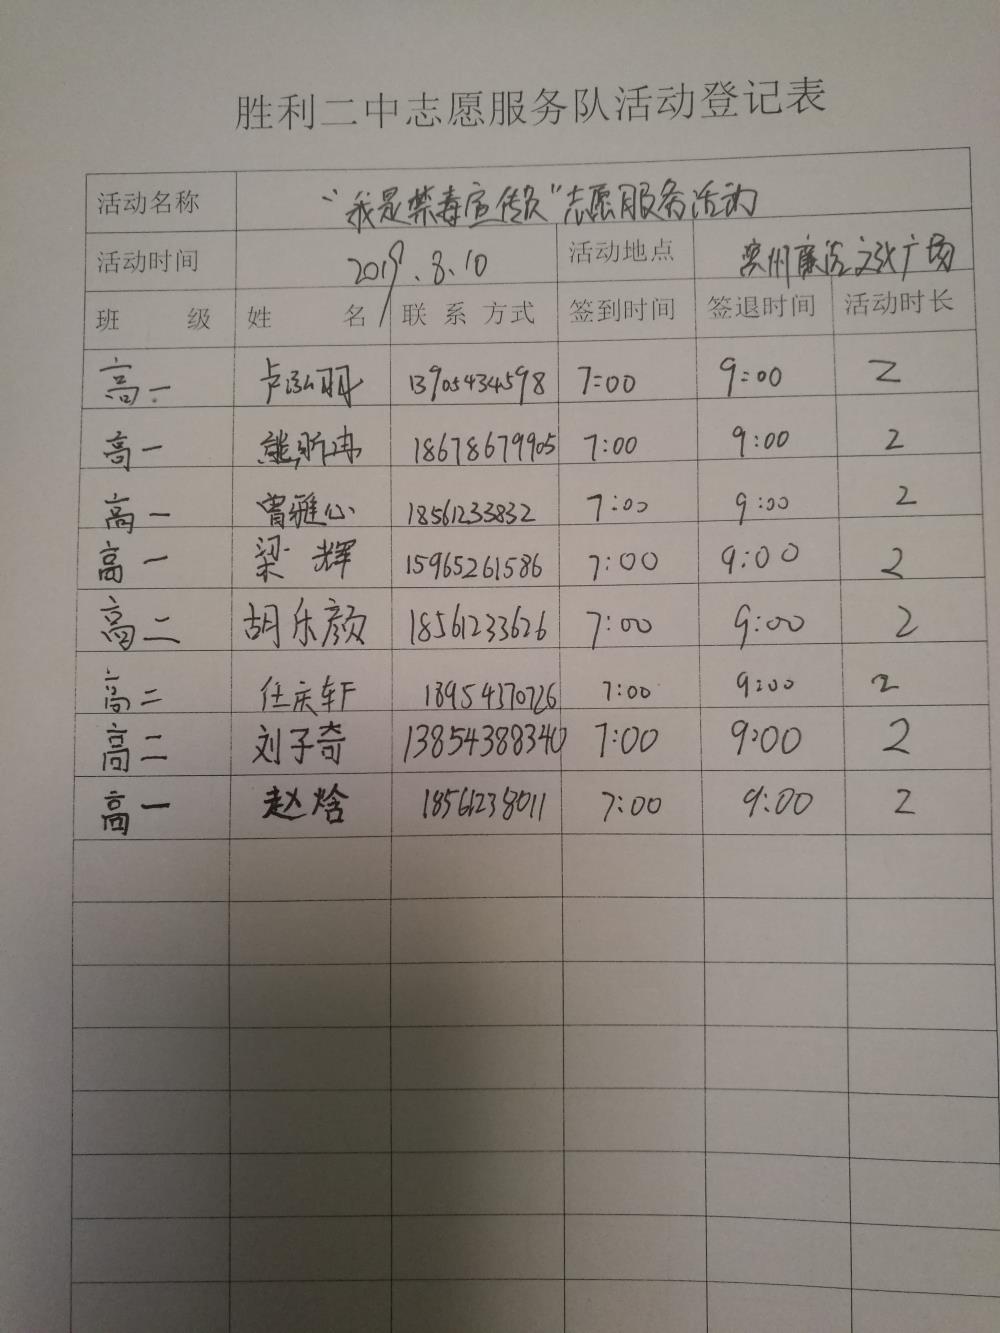 胜利二中志愿服务队活动登记表
活动名称 “我是禁毒宣传员”志愿服务活动
活动时间 2019.8.10 活动地点 滨州廉洁文化广场
班 级 姓 名 联 系 方式 签到时间 签退时间 活动时长
高一 卢泓羽 13905434598 7:00 9:00 2
高一 熊昕冉 18678679905 7:00 9:00 2
高一 曾雅心 18561233832 7:00 9:00 2
高一 梁辉 15965261586 7:00 9:00 2
高二 胡乐颜 18561233626 7:00 9:00 2
高二 任庆轩 13954370726 7:00 9:00 2
高二 刘子奇 13854388340 7:00 9:00 2
高一 赵焓 18561238011 7:00 9:00 2